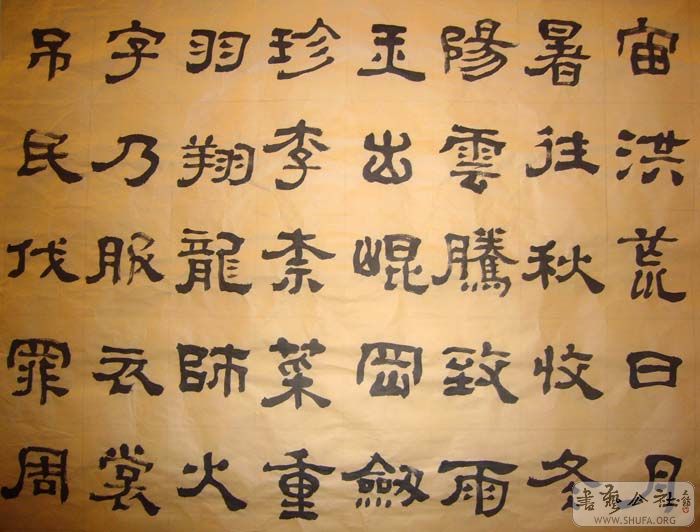 宙洪荒日月
暑往秋收冬
陽雲騰致雨
玉出崐罡劔
珍李柰菜重
羽翔龍師火
字乃服衣裳
吊民伐罪周
書藝公社
WWW.SHUFA.ORG